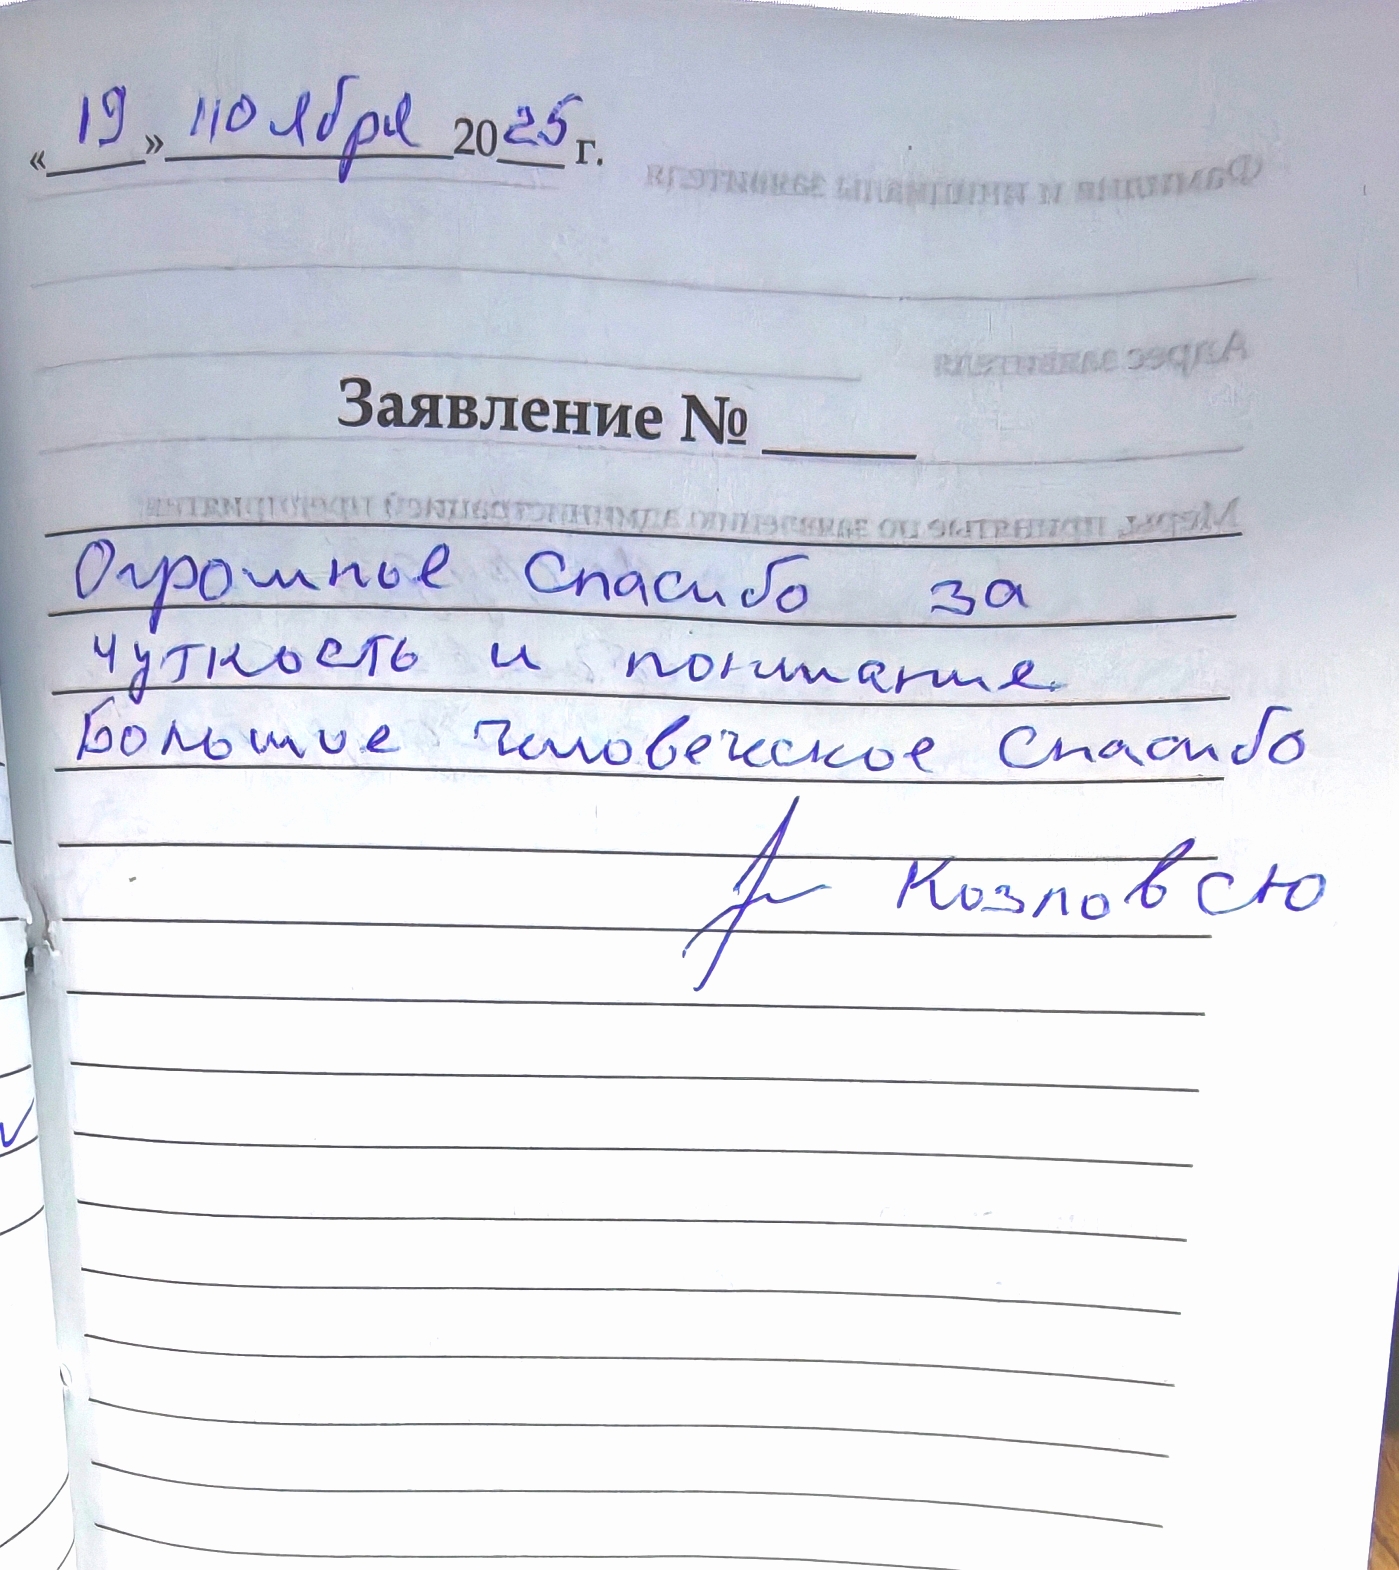 « 19 » ноября 2025 г.
Фамилия и инициалы заявителя
Адрес заявителя
Заявление № ____
Меры, принятые по заявлению администрацией предприятия
Огромное спасибо за
чуткость и понимание.
Большое человеческое спасибо
Козлов СЮ